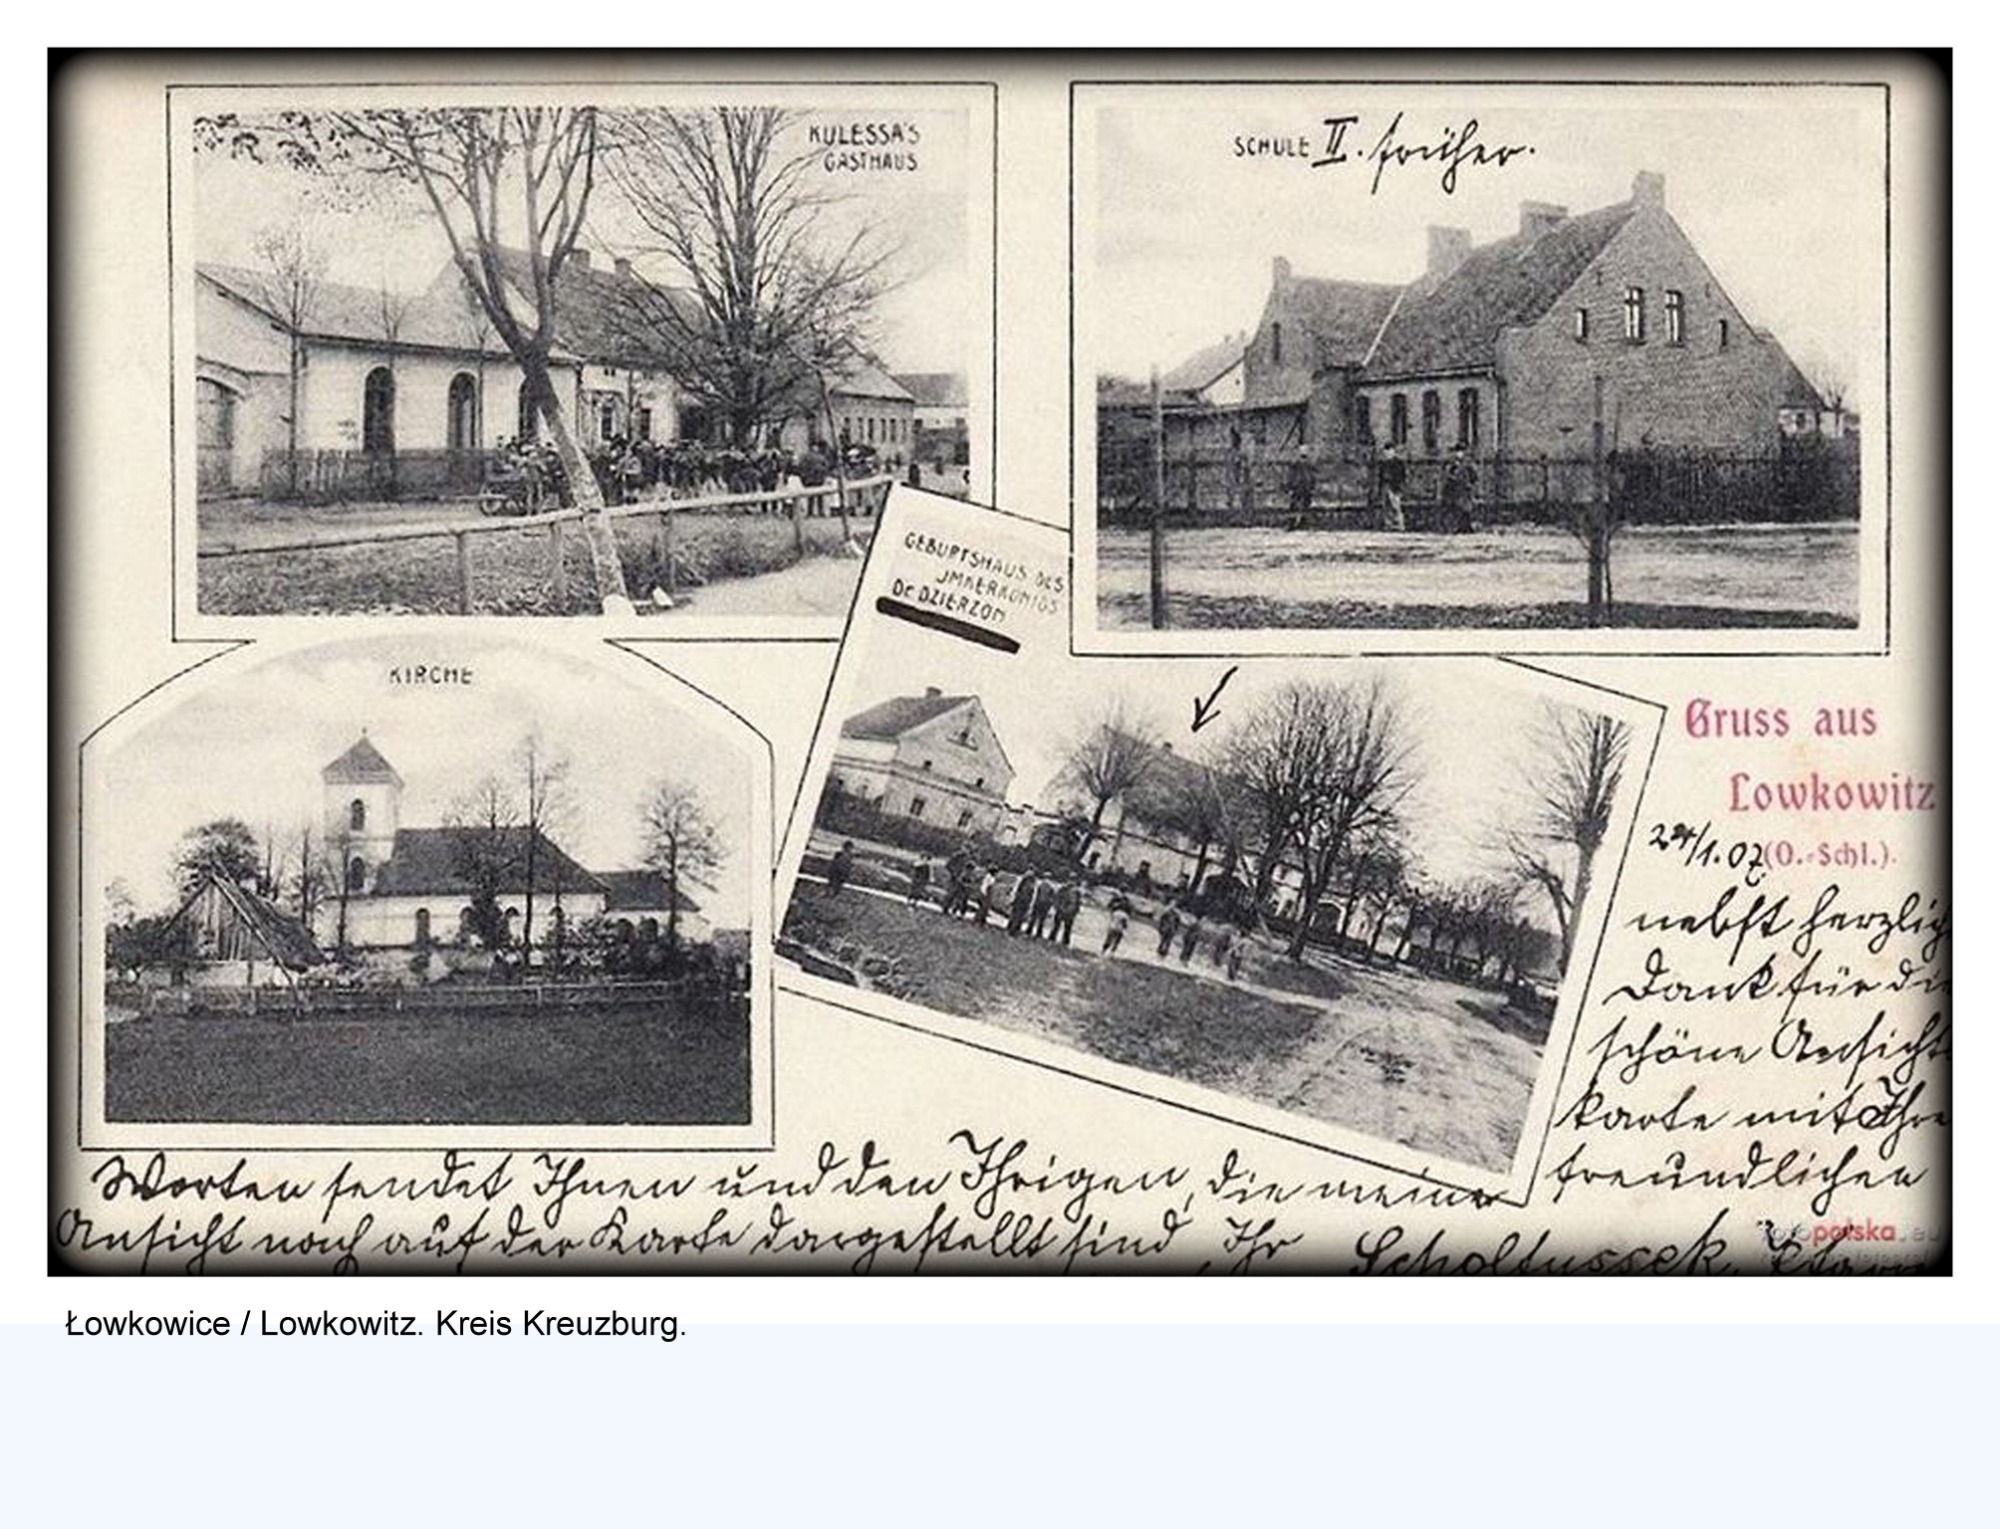 KULESSA'S
GASTHAUS
SCHULE II. früher.
GEBURTSHAUS DES
IMKERKÖNIGS
Dr. DZIERZON
KIRCHE
Gruss aus
Lowkowitz
(O.-Schl.).
24/1.07.
nebst herzlich
Dank für die
schöne Ansichts
karte mit Ihre
freundlichen
Worten sendet Ihnen und den Ihrigen, die meine
Ansicht noch auf der Karte dargestellt sind, Ihr Scholtussek,
fotopolska.eu
Łowkowice / Lowkowitz. Kreis Kreuzburg.